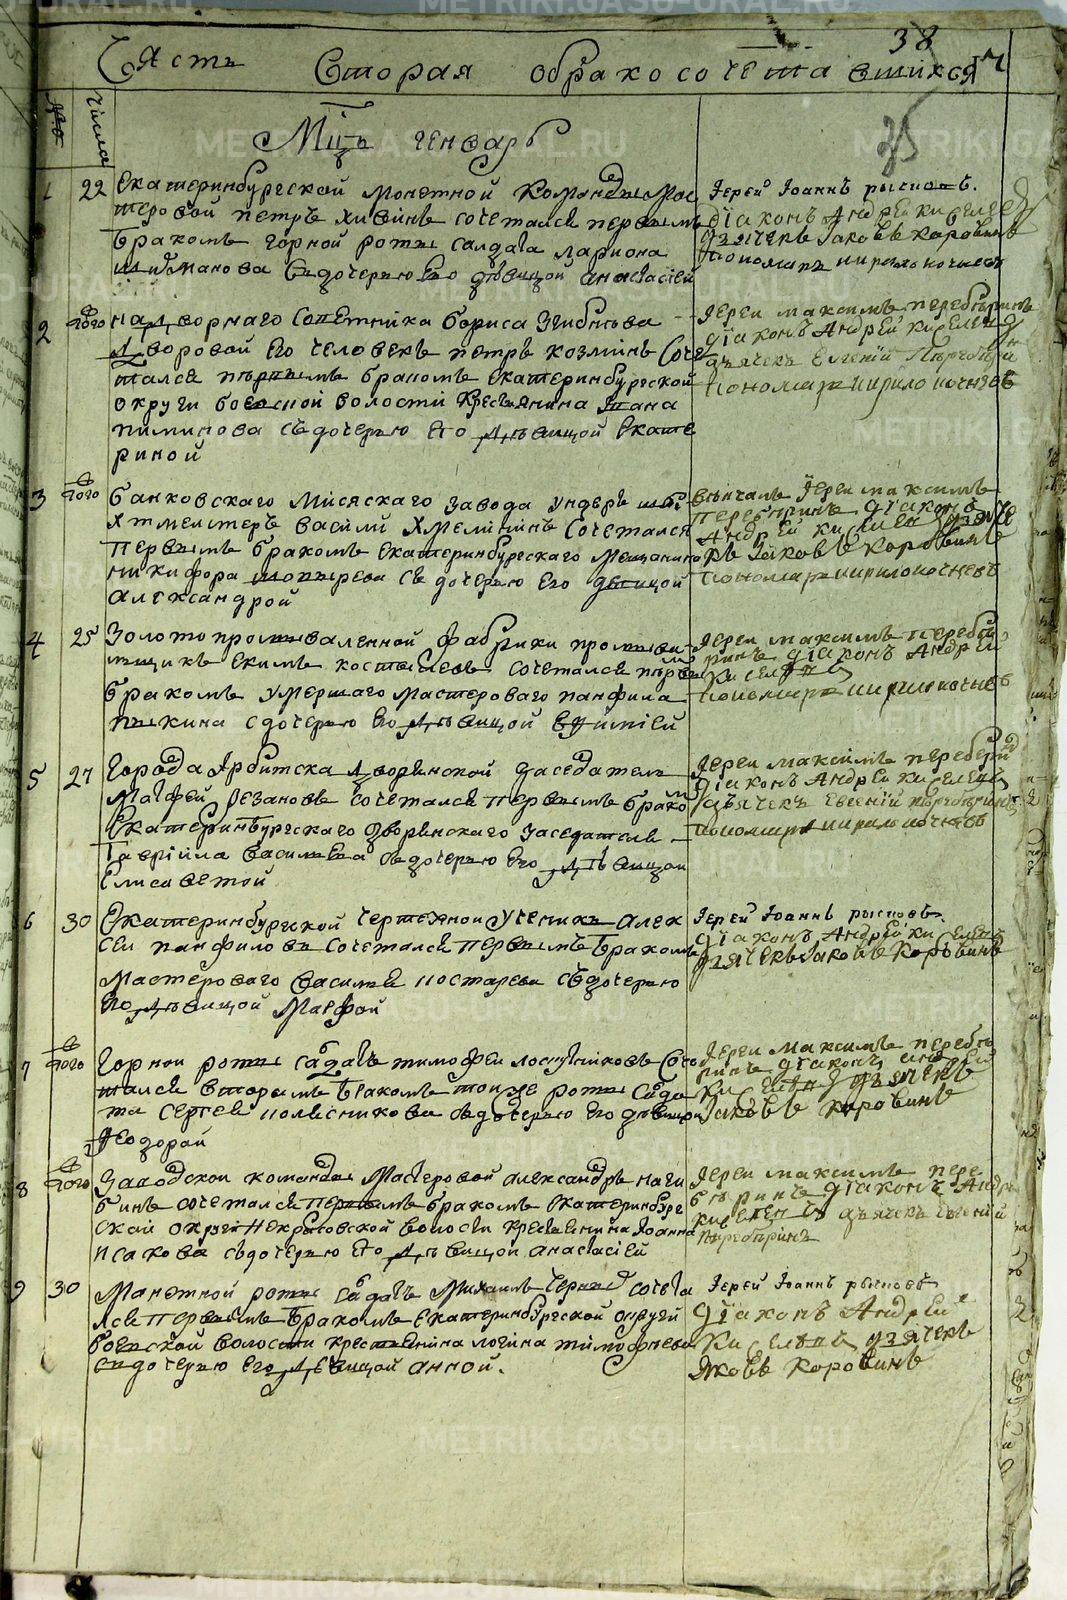 38
Часть Вторая обракосочетавшихся
№
числа
Мцъ генварь
1 22 Екатеринбургской монетной Команды Мас
теровой петръ хивинъ сочетался первымъ
бракомъ горной роты салдата лариона
съдочерью Его дѣвицой анастасiей
Iерей Iоаннъ
дiаконъ Андрей киселев
дьячекъ Iаковъ коровинъ
пономарь кирило кочневъ
2 того надворнаго советника бориса
дворовой Его человекъ петръ козминъ Соче
тался первымъ бракомъ Екатеринбургской
округи боевской волости крестьянина
пиминова съдочерью Его дѣвицой Екате
риной
Iереи максимъ перебѣринъ
дiаконъ Андрей киселев
дьячекъ Евгенiй
пономарь кирило кочневъ
3 того банковскаго Мiяскаго завода ундеръ ших
хтмеистеръ василiй хмелинiнъ Сочетался
Первымъ бракомъ Екатеринбургскаго мещанина
никифора съ дочерью его дѣвицой
александрой
вѣнчалъ Iереи максимъ
перебѣринъ дiаконъ
Андрей киселев дьяче
къ Iаковъ коровинъ
пономарь кирило кочневъ
4 25 Золотопромываленной фабрики промыва
льщикъ Екимъ костылевъ сочетался первы
бракомъ умершаго мастероваго панфила
пыкина сдочерью Его дѣвицой
Iереи максимъ перебѣ
ринъ дiаконъ Андрей
киселев
пономарь кирило кочневъ
5 27 Города Арбитска дворянской заседатель
Матфей резановъ сочетался первымъ брако
Екатеринбургскаго дворянскаго заседателя
гаврiила василева съдочерью Его дѣвицой
Елисаветой
Iереи максимъ перебѣри
дiаконъ Андрей киселев
дьячекъ Евгенiй перебѣринъ
пономарь кирило кочневъ
6 30 Екатеринбургской чертежной Ученикъ алек
сей панфиловъ Сочетался первымъ бракомъ
мастероваго василья постарева съдочерью
Его дѣвицой Марфой
Iерей Iоаннъ
дiаконъ Андрей киселев
дьячекъ Iаковъ коровинъ
7 того Горной роты салдатъ тимофей лоскутниковъ Соче
тался вторымъ бракомъ тоиже роты Салда
та Сергея полесникова съдочерью Его дѣвицой
Феодорой
Iереи максимъ перебѣ
ринъ дiаконъ андрей
киселев дьячекъ
Iаковъ коровинъ
8 того Заводской команды Мастеровой александръ наги
бинъ сочетался первымъ бракомъ Екатеринбург
ской округи Некрасовской волости крестьянина Iоанна
исакова съдочерью Его дѣвицой анастасiей
Iереи максимъ пере
бѣринъ дiаконъ Андре
киселев дьячекъ Евгенiй
перебѣринъ
9 30 Манетной роты салдатъ Михаилъ Сочета
лся первымъ бракомъ Екатеринбургской округи
боевской волости крестьянина логина тимофеева
съдочерью Его дѣвицой анной.
Iерей Iоаннъ
дiаконъ Андрей
киселев дьячекъ
Яковъ коровинъ
METRIKI.GASO-URAL.RU